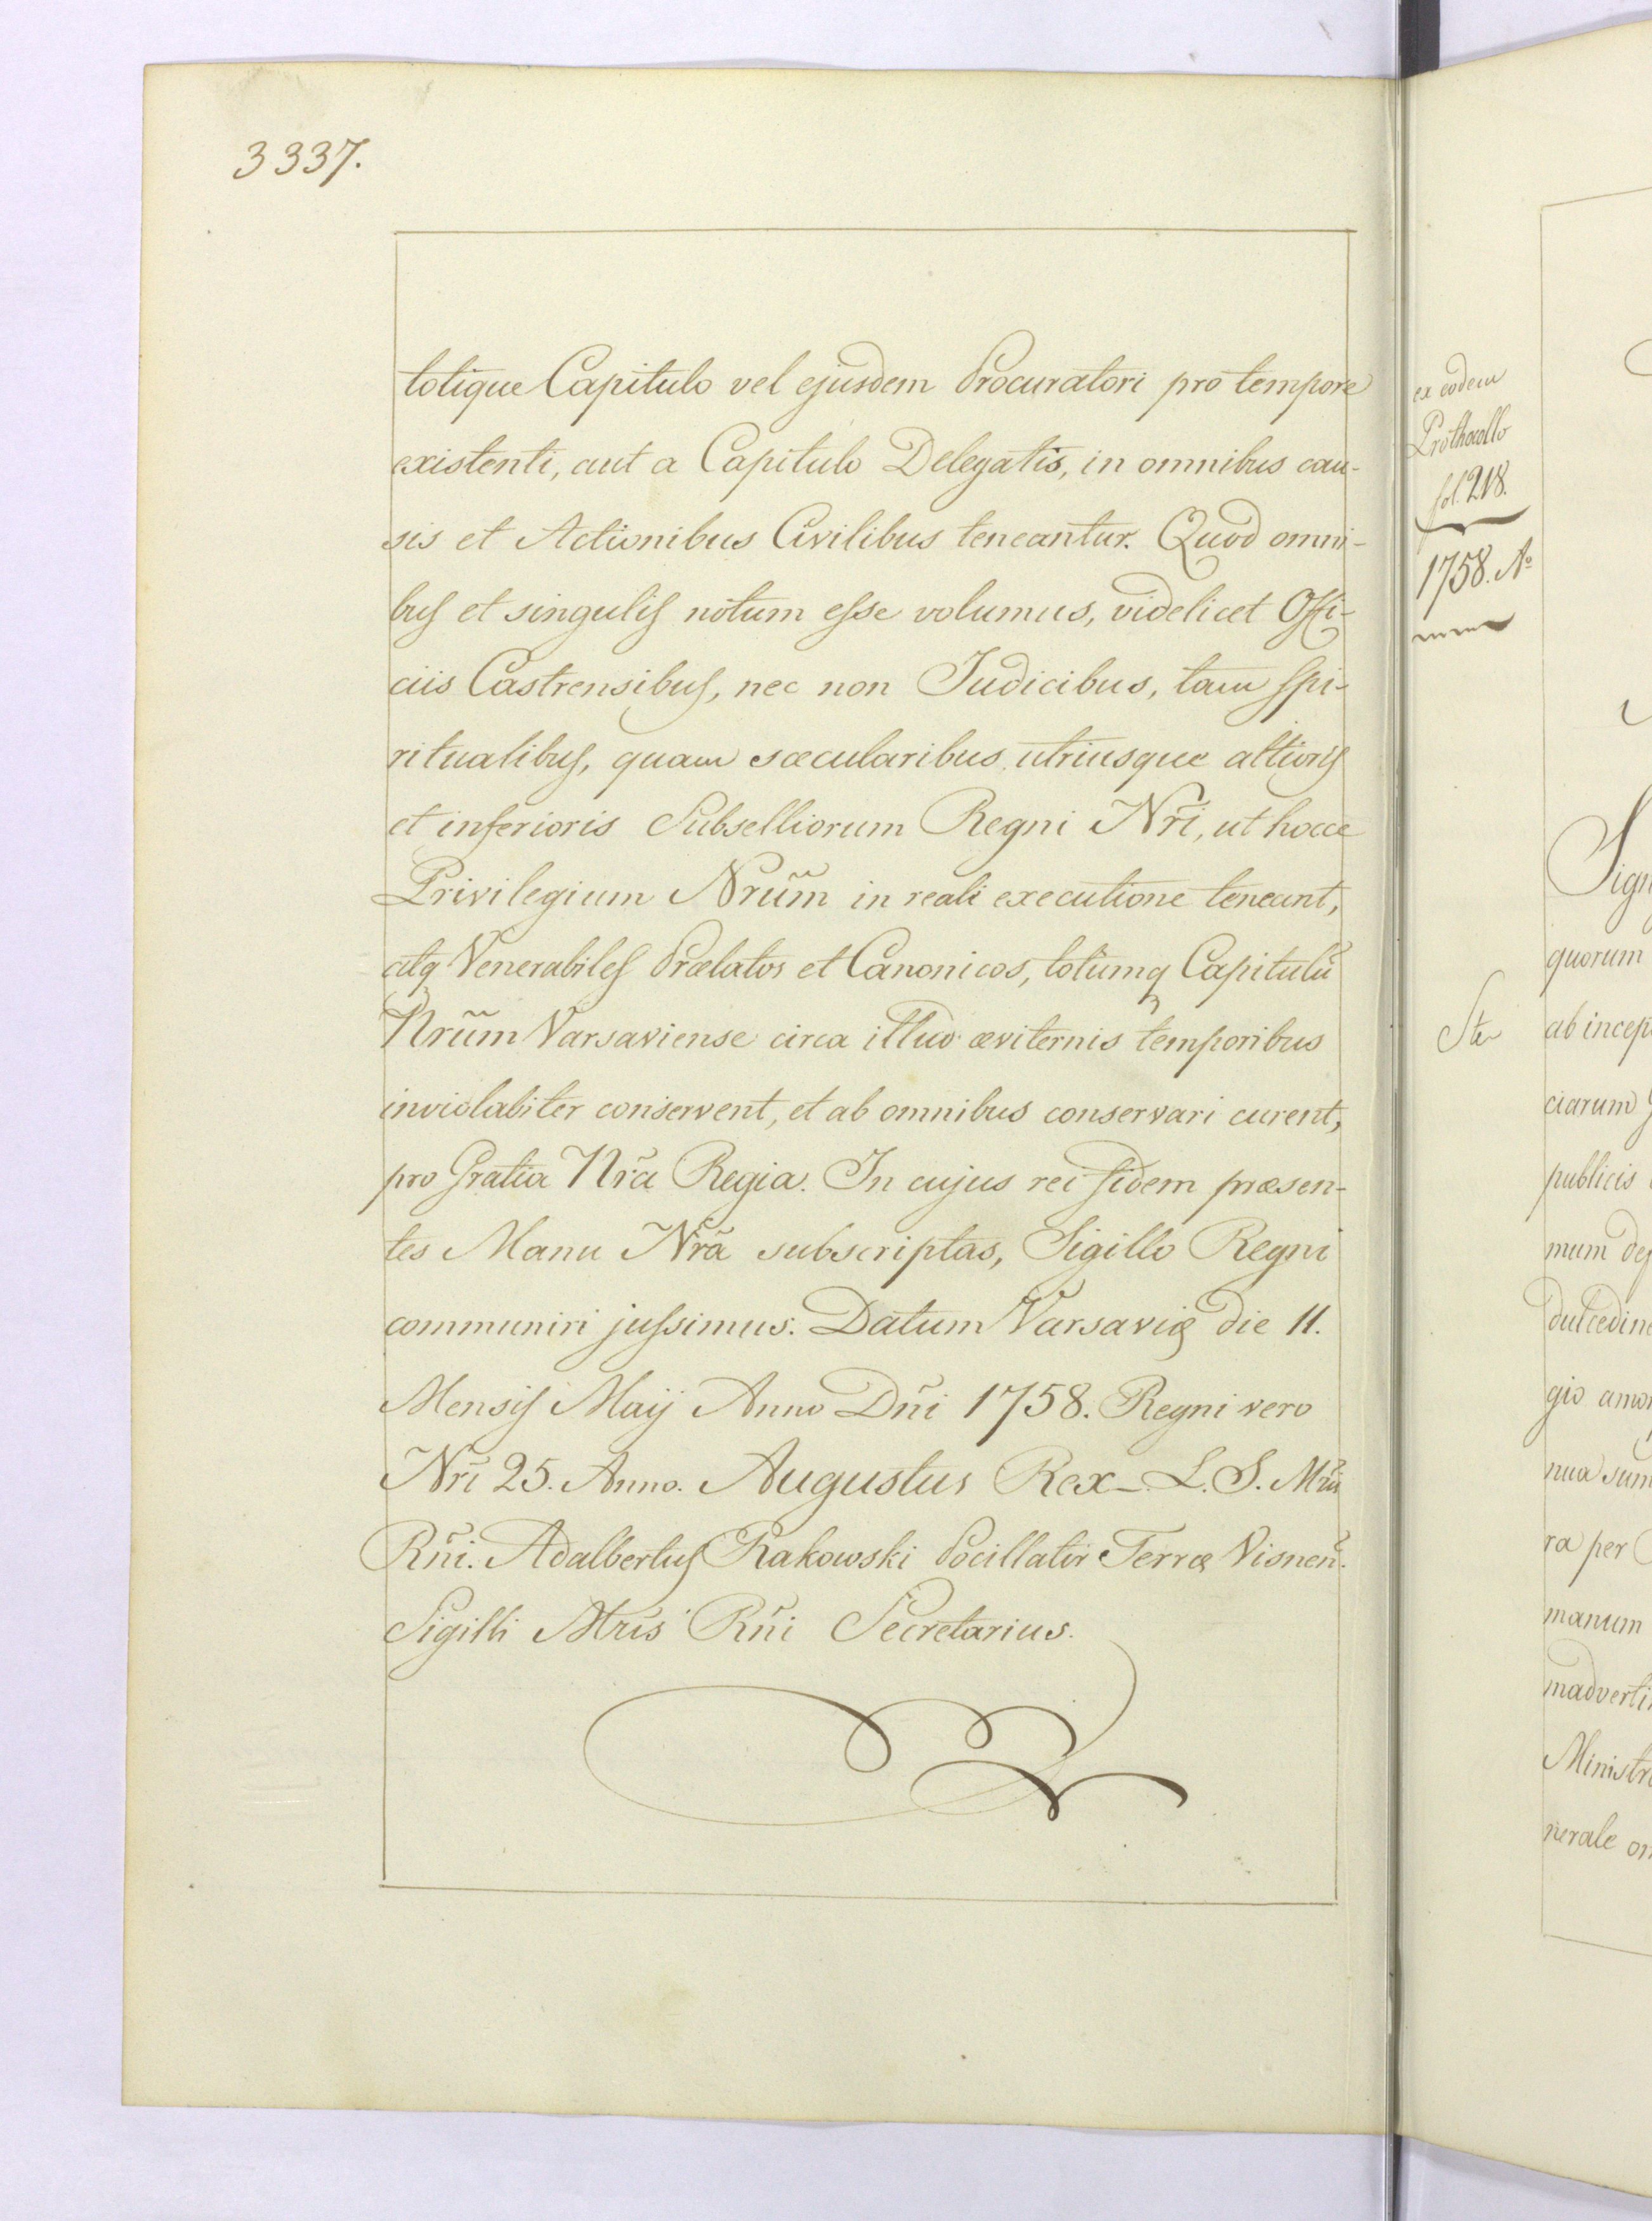 3337.
totique Capitulo vel ejusdem Procuratori pro tempore
existenti, aut a Capitulo Delegatis, in omnibus cau-
sis et Actionibus Civilibus teneantur. Quod omni-
bus et singulis notum esse volumus, videlicet Offi-
ciis Castrensibus, nec non Judicibus, tam Spi-
ritualibus, quam sæcularibus utriusque altioris
et inferioris Subselliorum Regni Nr̃i, ut hocce
Privilegium Nrũm in reali executione teneant,
atq Venerabiles Prælatos et Canonicos, totumq Capitulũ
Nrũm Varsaviense circa illud æviternis temporibus
inviolabiter conservent, et ab omnibus conservari curent,
pro Gratia Nr̃a Regia. In cujus rei fidem præsen-
tes Manu Nr̃a subscriptas, Sigillo Regni
communiri jussimus. Datum Varsaviæ die 11.
Mensis Maij Anno Dñi 1758. Regni vero
Nr̃i 25. Anno. Augustus Rex _ L. S. Mrii
Rñi. Adalbertus Rakowski Pocillator Terræ Visneñ.
Sigilli Mris Rñi Secretarius.
ex eodem
Prothocollo
fol. 218.
1758. Aº
Sign
quorum
ab incep
ciarum
publicis
mum de
dulcedine
gio amo
nua sum
ra per
manum
madverti
Ministr
nerale on